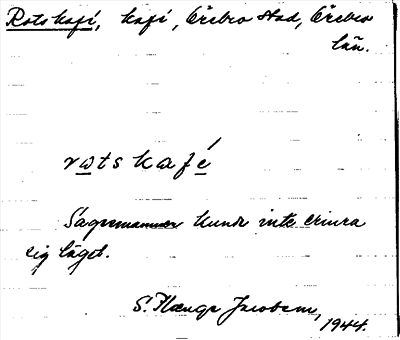 Rots kafé, kafé, Örebro stad, Örebro
län.
rots kafé
Sagesmannen kunde inte erinra
sig läget.
S. Hænge Jacobsen,
1944.